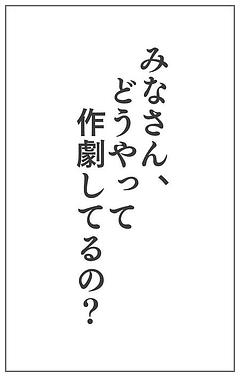 みなさん、
どうやって
作劇してるの？